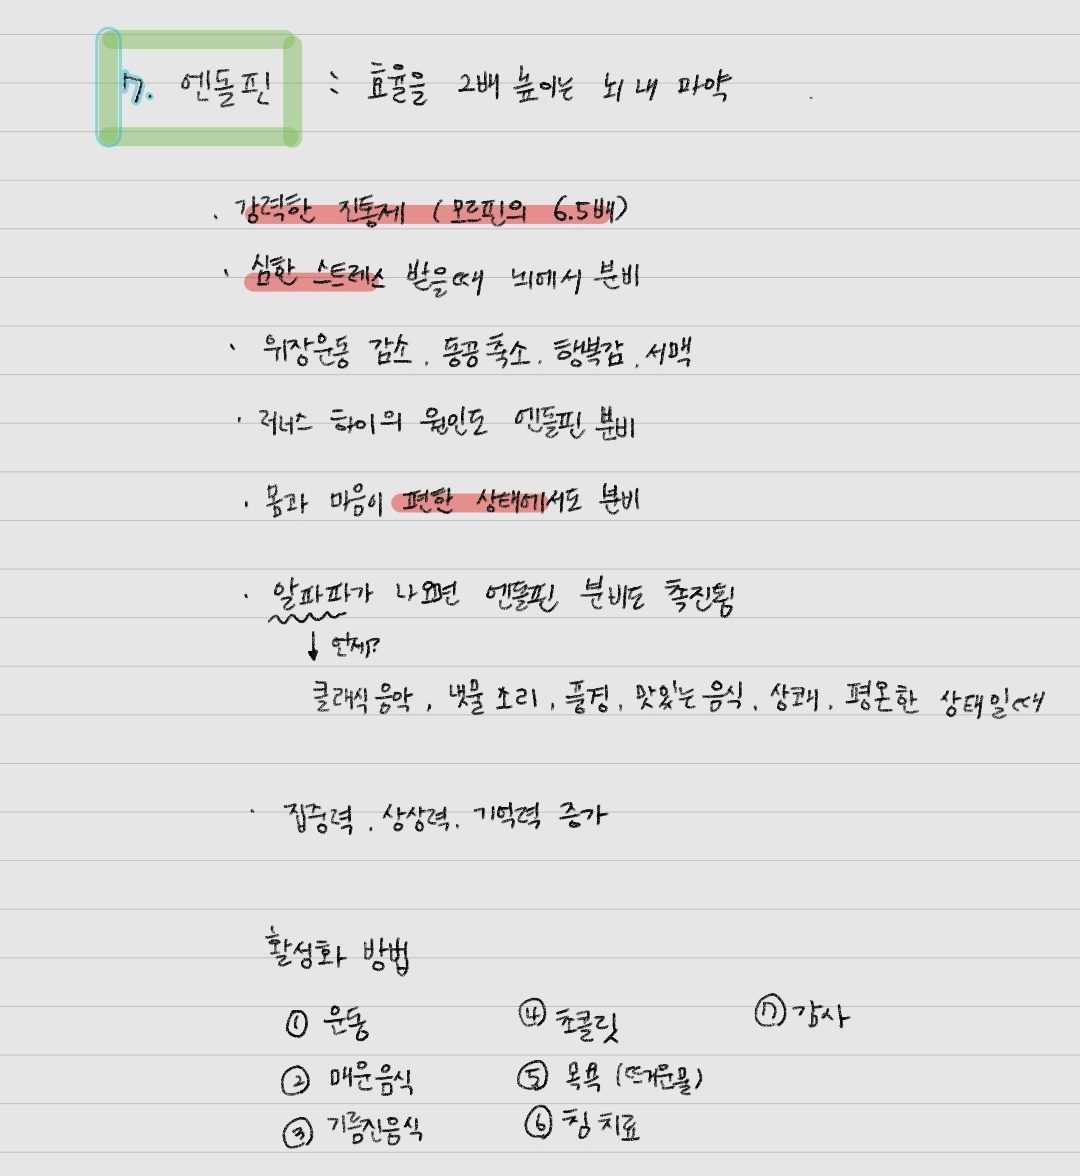 7. 엔돌핀 : 효율을 2배 높이는 뇌 내 마약
· 강력한 진통제 (모르핀의 6.5배)
· 심한 스트레스 받을때 뇌에서 분비
· 위장운동 감소, 동공축소, 행복감, 서맥
· 러너스 하이의 원인도 엔돌핀 분비
· 몸과 마음이 편한 상태에서도 분비
· 알파파가 나오면 엔돌핀 분비도 촉진됨
↓ 언제?
클래식음악, 냇물 소리, 풍경, 맛있는 음식, 상쾌, 평온한 상태일때
· 집중력, 상상력, 기억력 증가
활성화 방법
① 운동 ④ 초콜릿 ⑦ 감사
② 매운음식 ⑤ 목욕 (뜨거운물)
③ 기름진음식 ⑥ 침 치료